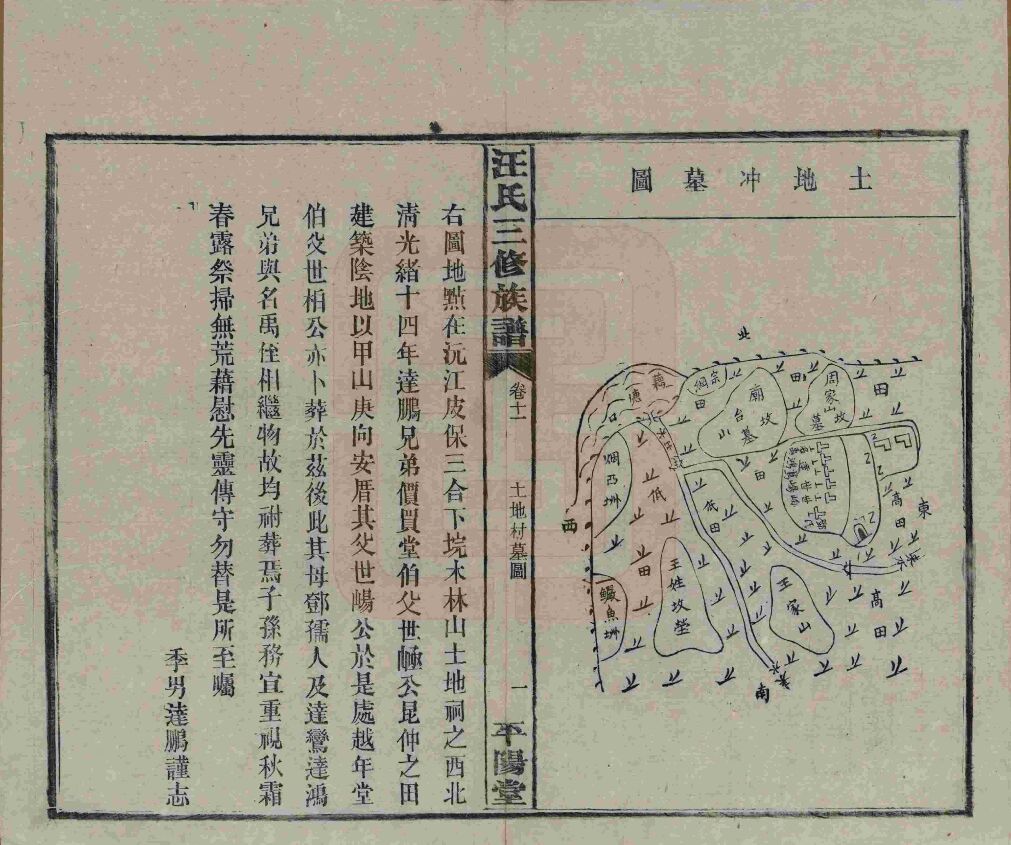 土地冲墓圖
北
東
南
西
藕塘
宗綱田
田
廟台山墓坟
周家山墓坟
田
烟凸洲
低田
低田
田
高田
高田
鱔魚洲
王姓坟瑩
王家山
汪氏三修族譜
卷十一
土地村墓圖
一
平陽堂
右圖地㸃在沅江皮保三合下垸木林山土地祠之西北
淸光緒十四年達鵬兄弟價買堂伯父世㡣公昆仲之田
建築陰地以甲山庚向安厝其父世崵公於是處越年堂
伯父世相公亦卜葬於茲後此其母鄧孺人及達鸞達鴻
兄弟與名禹侄相繼物故均祔葬焉子孫務宜重視秋霜
春露祭掃無荒藉慰先靈傳守勿替是所至囑
季男達鵬謹志